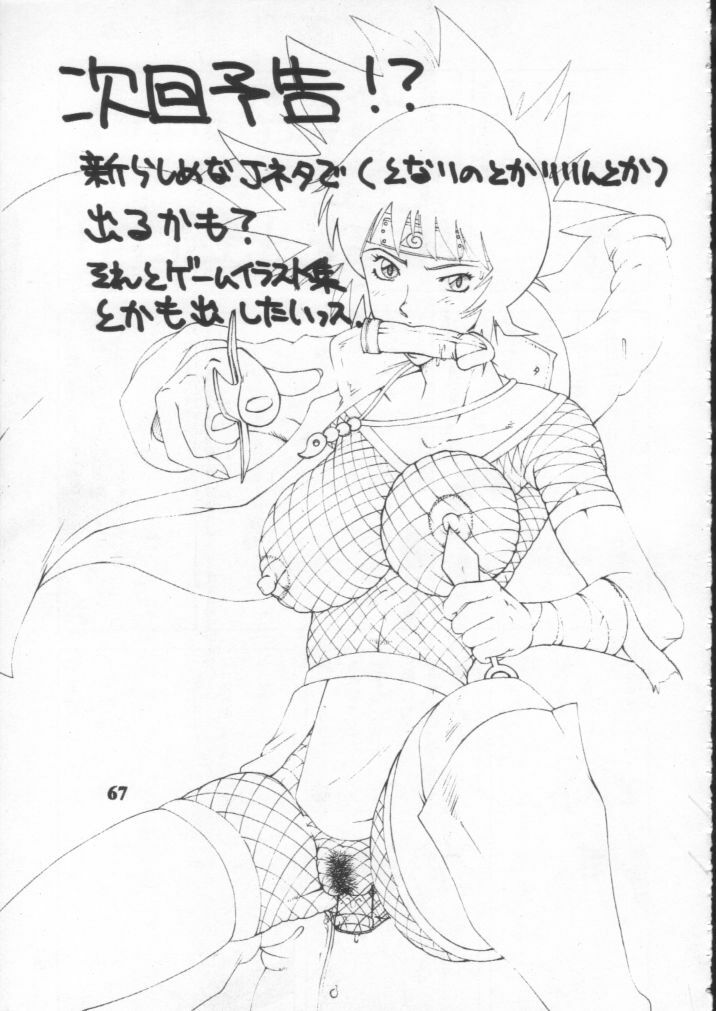 次回予告!?
新らしめなJネタで(となりのとかりりんとか)
出るかも?
それとゲームイラスト集
とかも出したいっス.
67